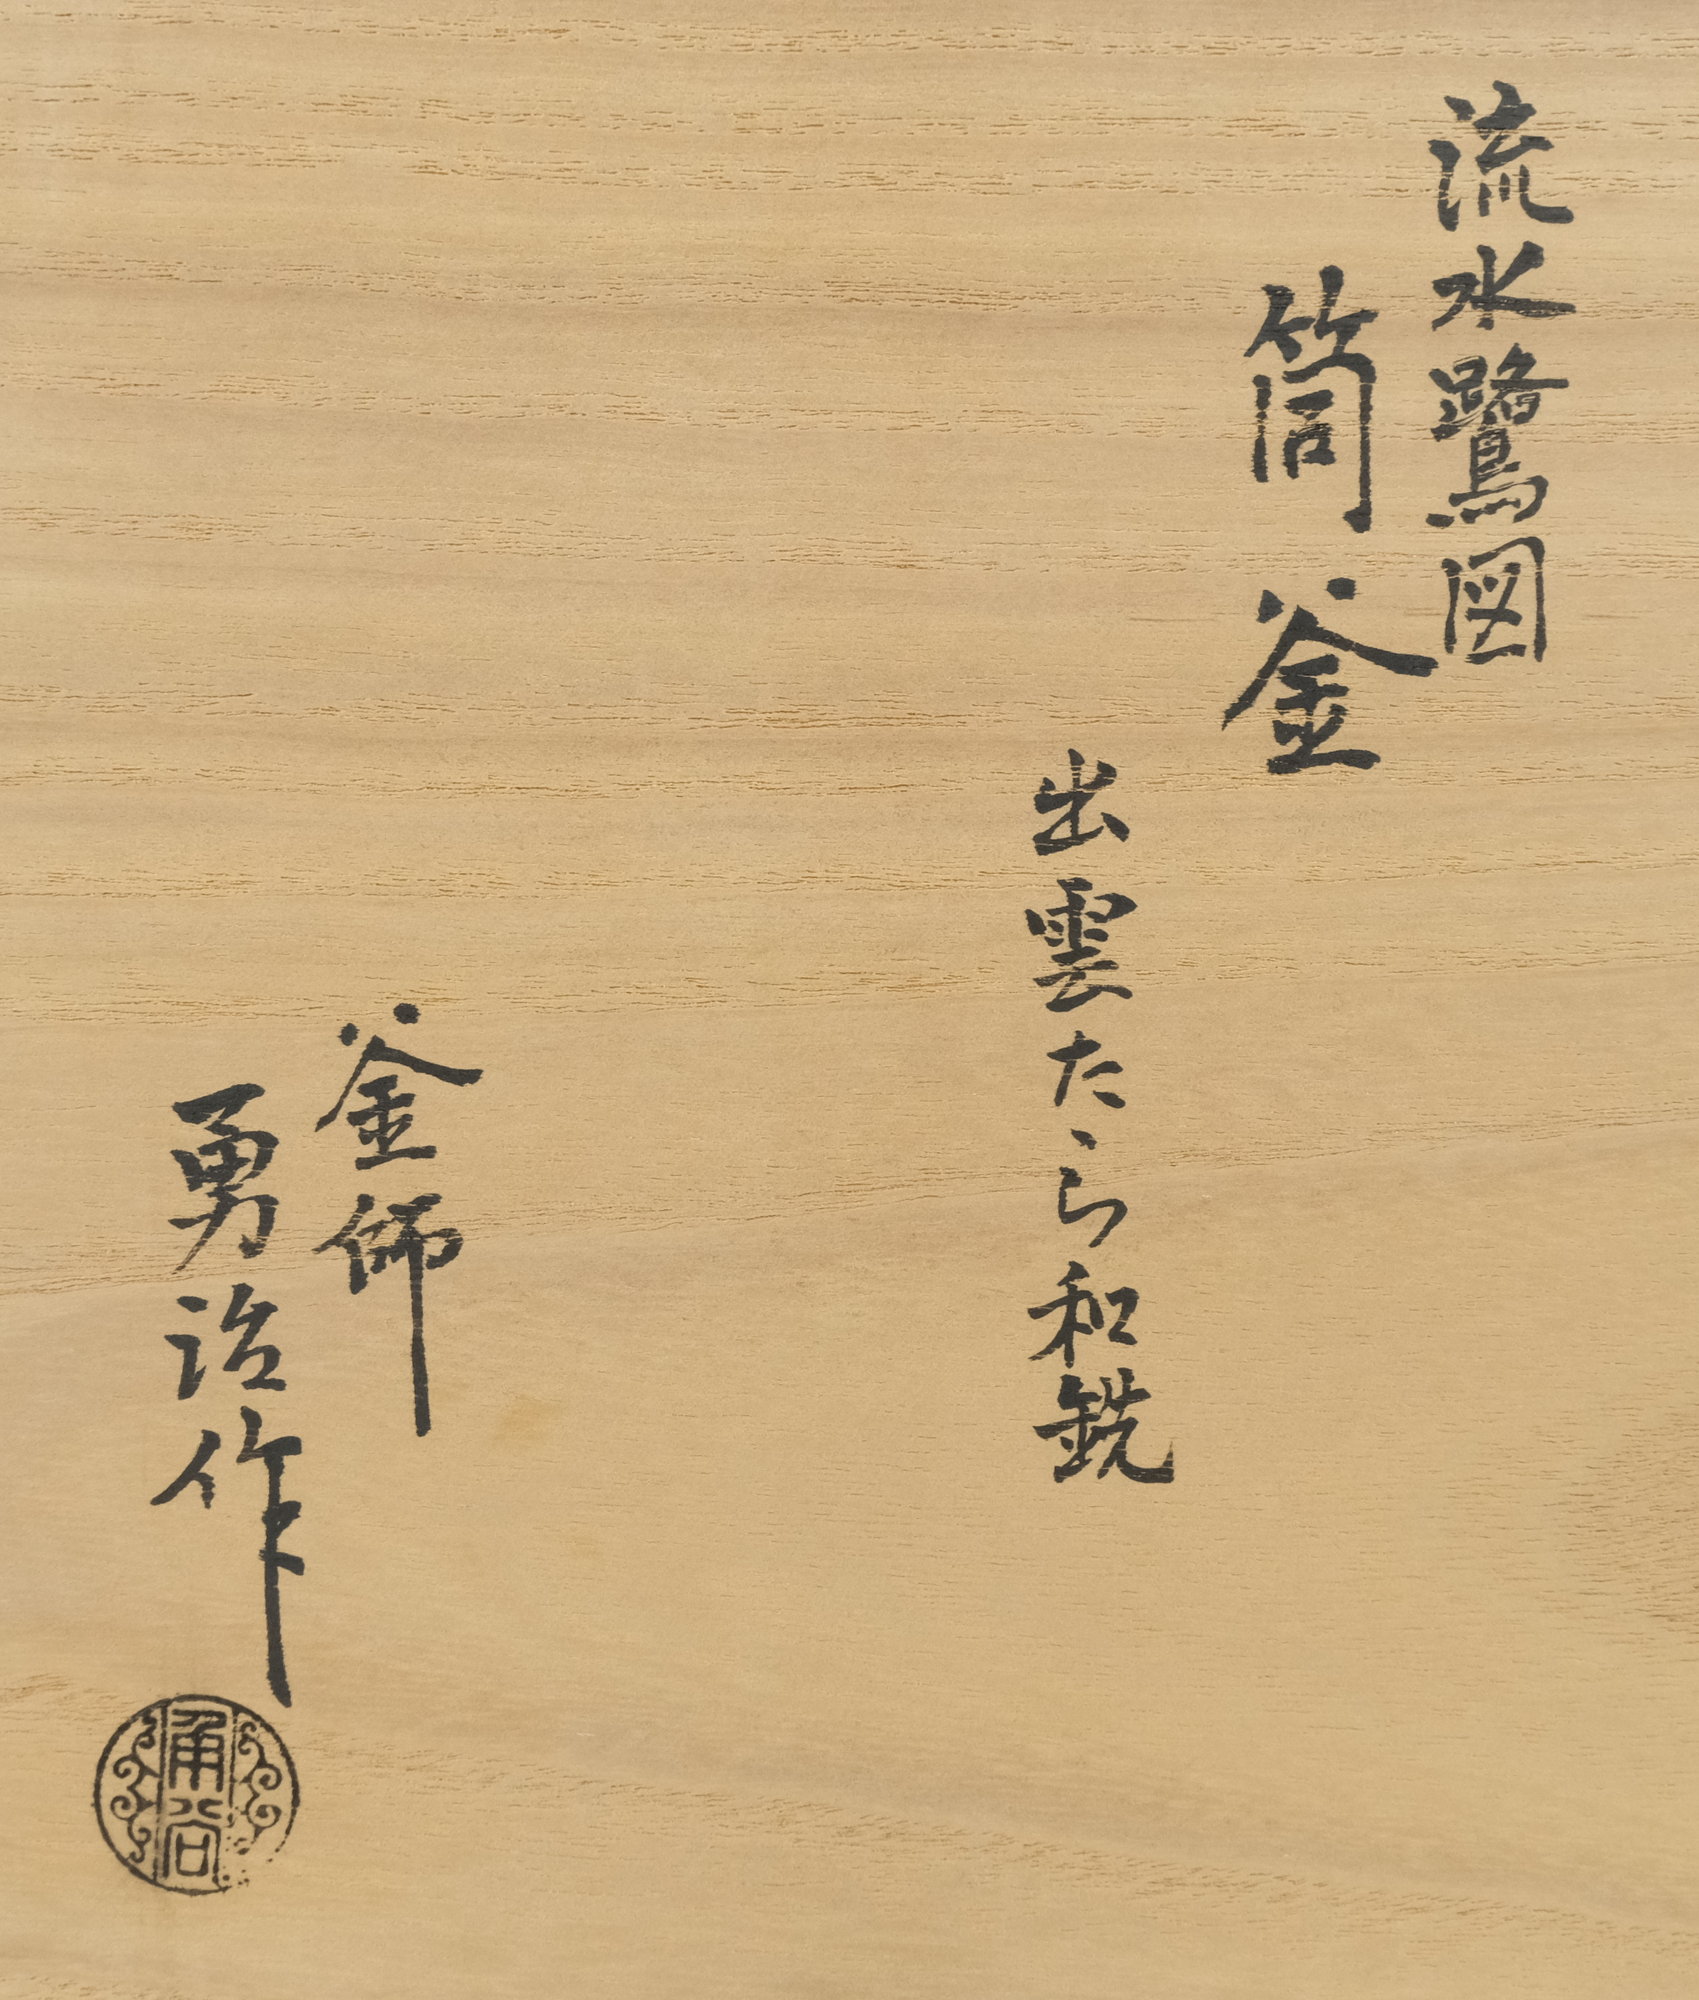 流水鷺図
筒釜
出雲たゝら和銑
釜師
勇治作
角谷